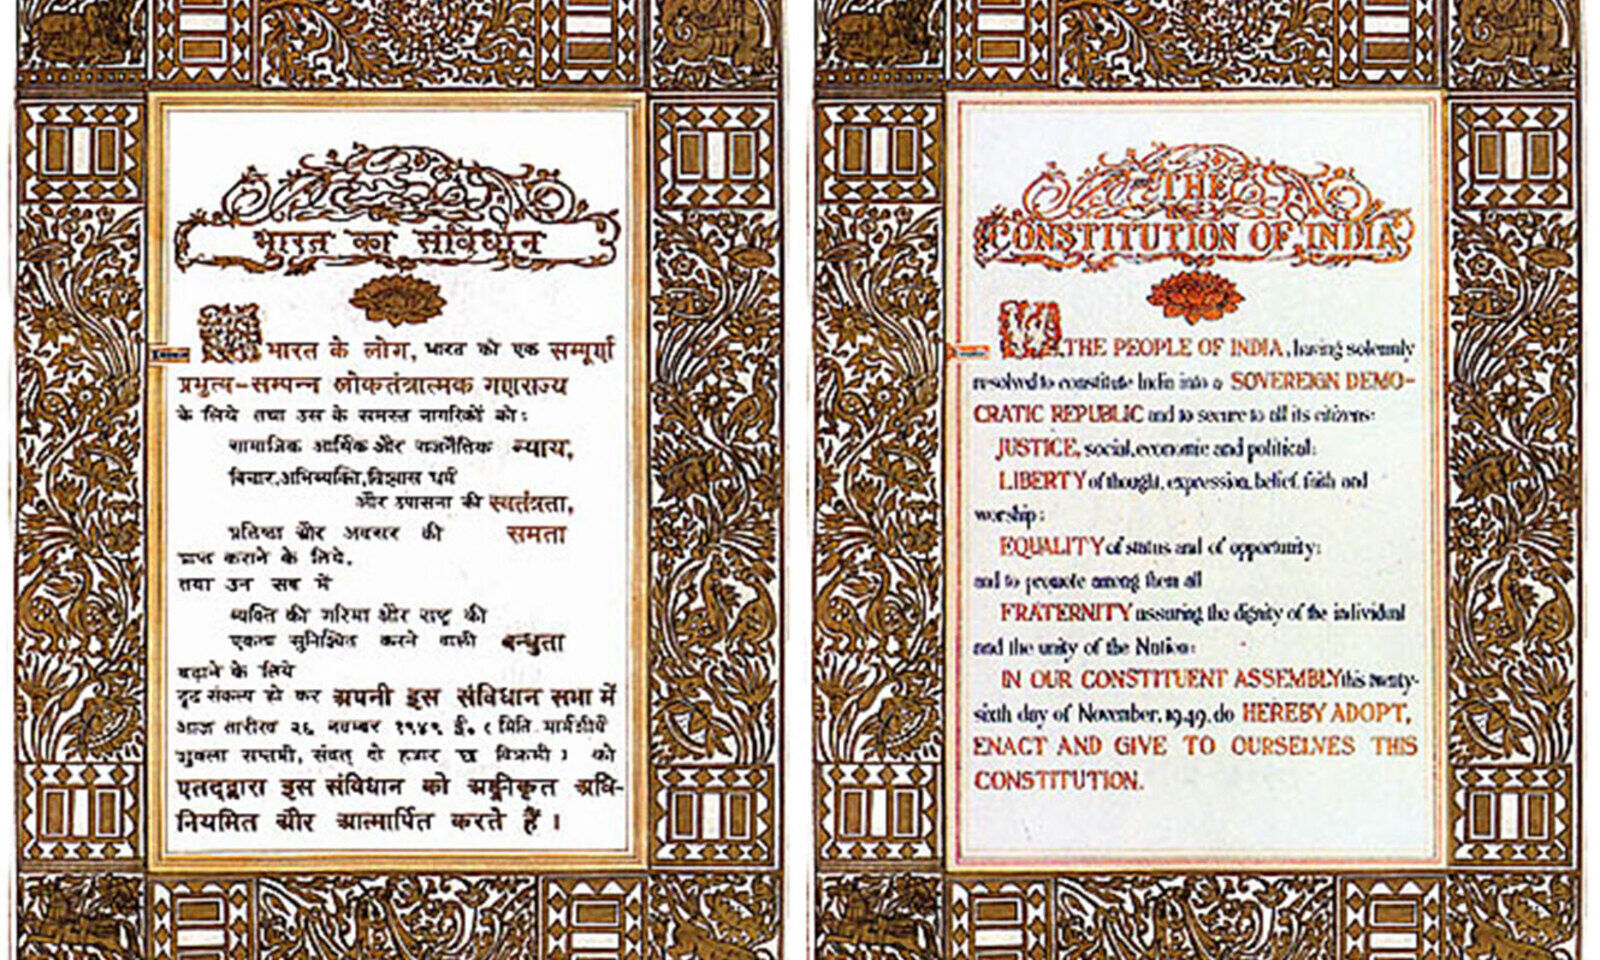 भारत का संविधान
हम भारत के लोग, भारत को एक सम्पूर्ण
प्रभुत्व-सम्पन्न लोकतंत्रात्मक गणराज्य
के लिये तथा उस के समस्त नागरिकों को:
सामाजिक आर्थिक और राजनैतिक न्याय,
विचार, अभिव्यक्ति, विश्वास धर्म
और उपासना की स्वतंत्रता,
प्रतिष्ठा और अवसर की समता
प्राप्त कराने के लिये,
तथा उन सब में
व्यक्ति की गरिमा और राष्ट्र की
एकता सुनिश्चित करने वाली बन्धुता
बढ़ाने के लिये
दृढ़ संकल्प हो कर अपनी इस संविधान सभा में
आज तारीख २६ नवम्बर १९४९ ई० (मिति मार्गशीर्ष
शुक्ला सप्तमी, संवत् दो हजार छ विक्रमी) को
एतद्द्वारा इस संविधान को अङ्गीकृत अधि-
नियमित और आत्मार्पित करते हैं ।
THE
CONSTITUTION OF INDIA
WE, THE PEOPLE OF INDIA, having solemnly
resolved to constitute India into a SOVEREIGN DEMO-
CRATIC REPUBLIC and to secure to all its citizens:
JUSTICE, social, economic and political;
LIBERTY of thought, expression, belief, faith and
worship;
EQUALITY of status and of opportunity;
and to promote among them all
FRATERNITY assuring the dignity of the individual
and the unity of the Nation;
IN OUR CONSTITUENT ASSEMBLY this twenty-
sixth day of November, 1949, do HEREBY ADOPT,
ENACT AND GIVE TO OURSELVES THIS
CONSTITUTION.